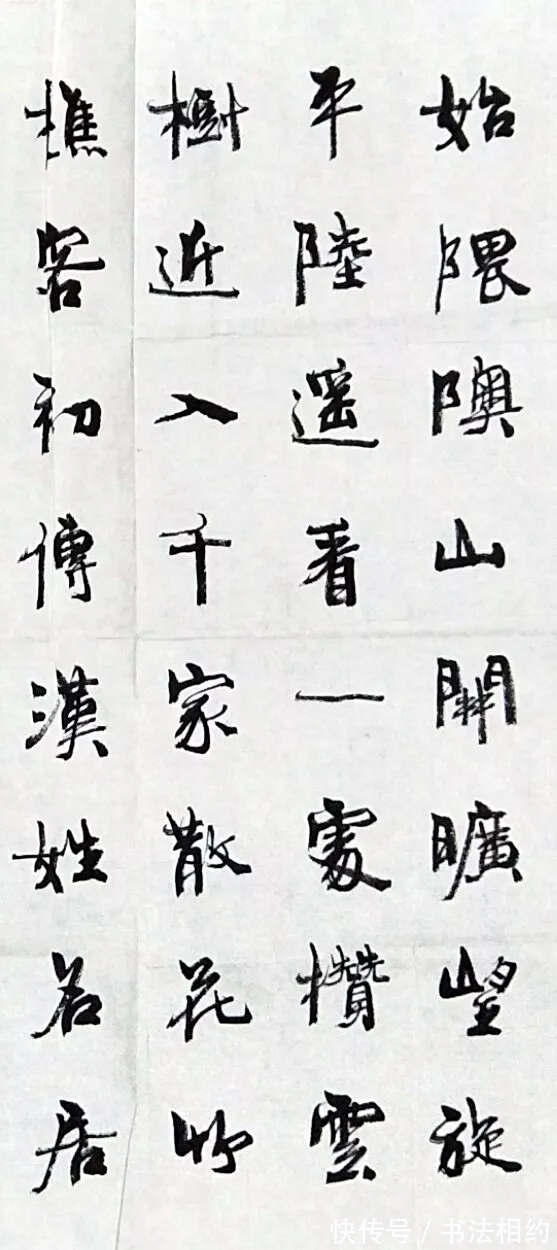 始隈隩山開曠望旋
平陸遥看一處攢雲
樹近入千家散花竹
樵客初傳漢姓名居
快传号/书法相约